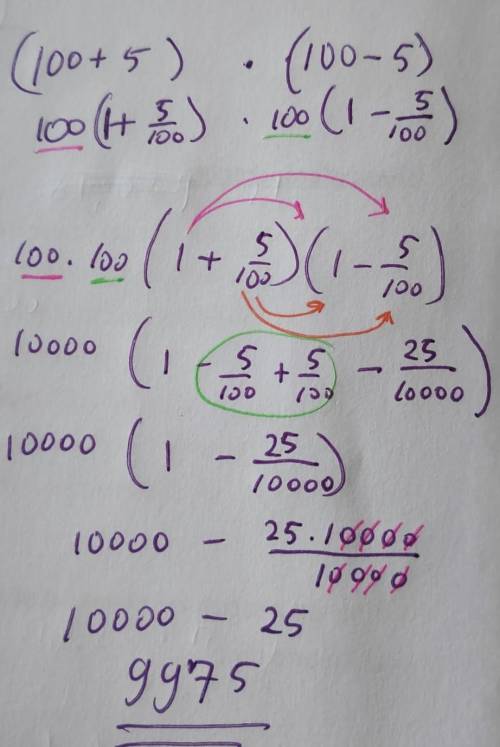 (100 + 5) · (100 - 5)
100(1 + 5/100) · 100(1 - 5/100)
100 · 100 (1 + 5/100)(1 - 5/100)
10000 (1 - 5/100 + 5/100 - 25/10000)
10000 (1 - 25/10000)
10000 - 25 · 10000/10000
10000 - 25
9975